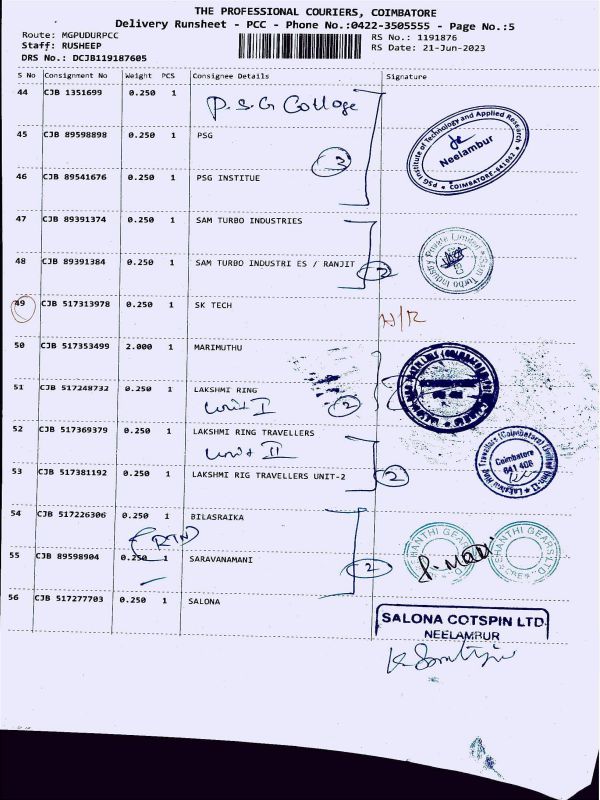 THE PROFESSIONAL COURIERS, COIMBATORE
Delivery Runsheet - PCC - Phone No.:0422-3505555 - Page No.:5
Route: MGPUDURPCC
Staff: RUSHEEP
DRS No.: DCJB119187605
RS No.: 1191876
RS Date: 21-Jun-2023
S No Consignment No Weight PCS Consignee Details Signature
44 CJB 1351699 0.250 1 P.S.G College
45 CJB 89598898 0.250 1 PSG
PSG Institute of Technology and Applied Research
Neelambur
COIMBATORE-641062
3
46 CJB 89541676 0.250 1 PSG INSTITUE
47 CJB 89391374 0.250 1 SAM TURBO INDUSTRIES
Sam Turbo Industry Private Limited
48 CJB 89391384 0.250 1 SAM TURBO INDUSTRI ES / RANJIT
2
49 CJB 517313978 0.250 1 SK TECH
N/R
50 CJB 517353499 2.000 1 MARIMUTHU
51 CJB 517248732 0.250 1 LAKSHMI RING
unit I
2
52 CJB 517369379 0.250 1 LAKSHMI RING TRAVELLERS
unit II
Lakshmi Ring Travellers (Coimbatore) Limited Unit-II
Coimbatore
641 406
53 CJB 517381192 0.250 1 LAKSHMI RIG TRAVELLERS UNIT-2
2
54 CJB 517226306 0.250 1 BILASRAIKA
RTN
55 CJB 89598904 0.250 1 SARAVANAMANI
2
SHANTHI GEARS LTD
SHANTHI GEARS LTD
56 CJB 517277703 0.250 1 SALONA
SALONA COTSPIN LTD
NEELAMBUR